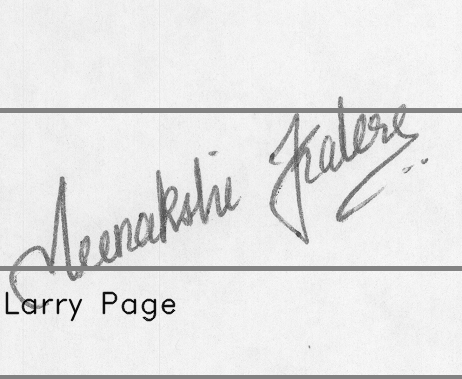 Meenakshi Katere
Larry Page